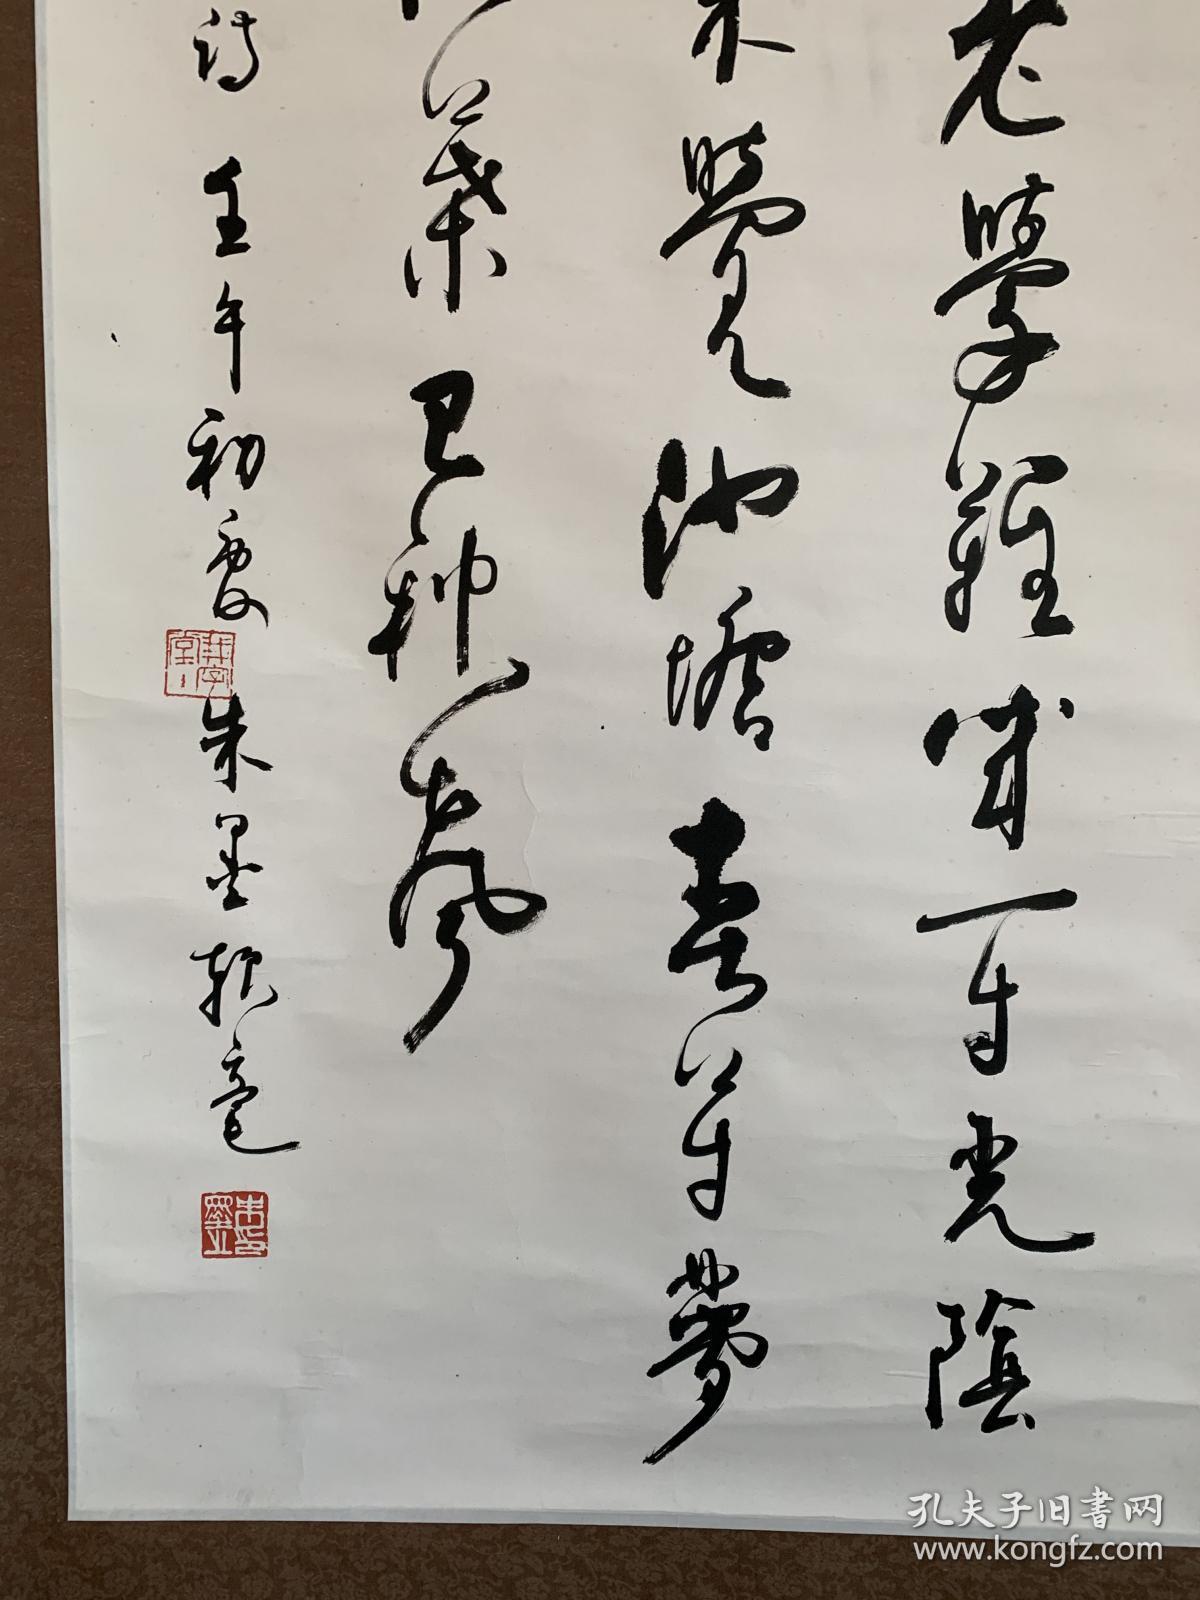 老學難成一寸光陰
未覺池塘春草夢
葉已秋聲
詩 壬午初夏 朱墨執毫
孔夫子旧书网
www.kongfz.com